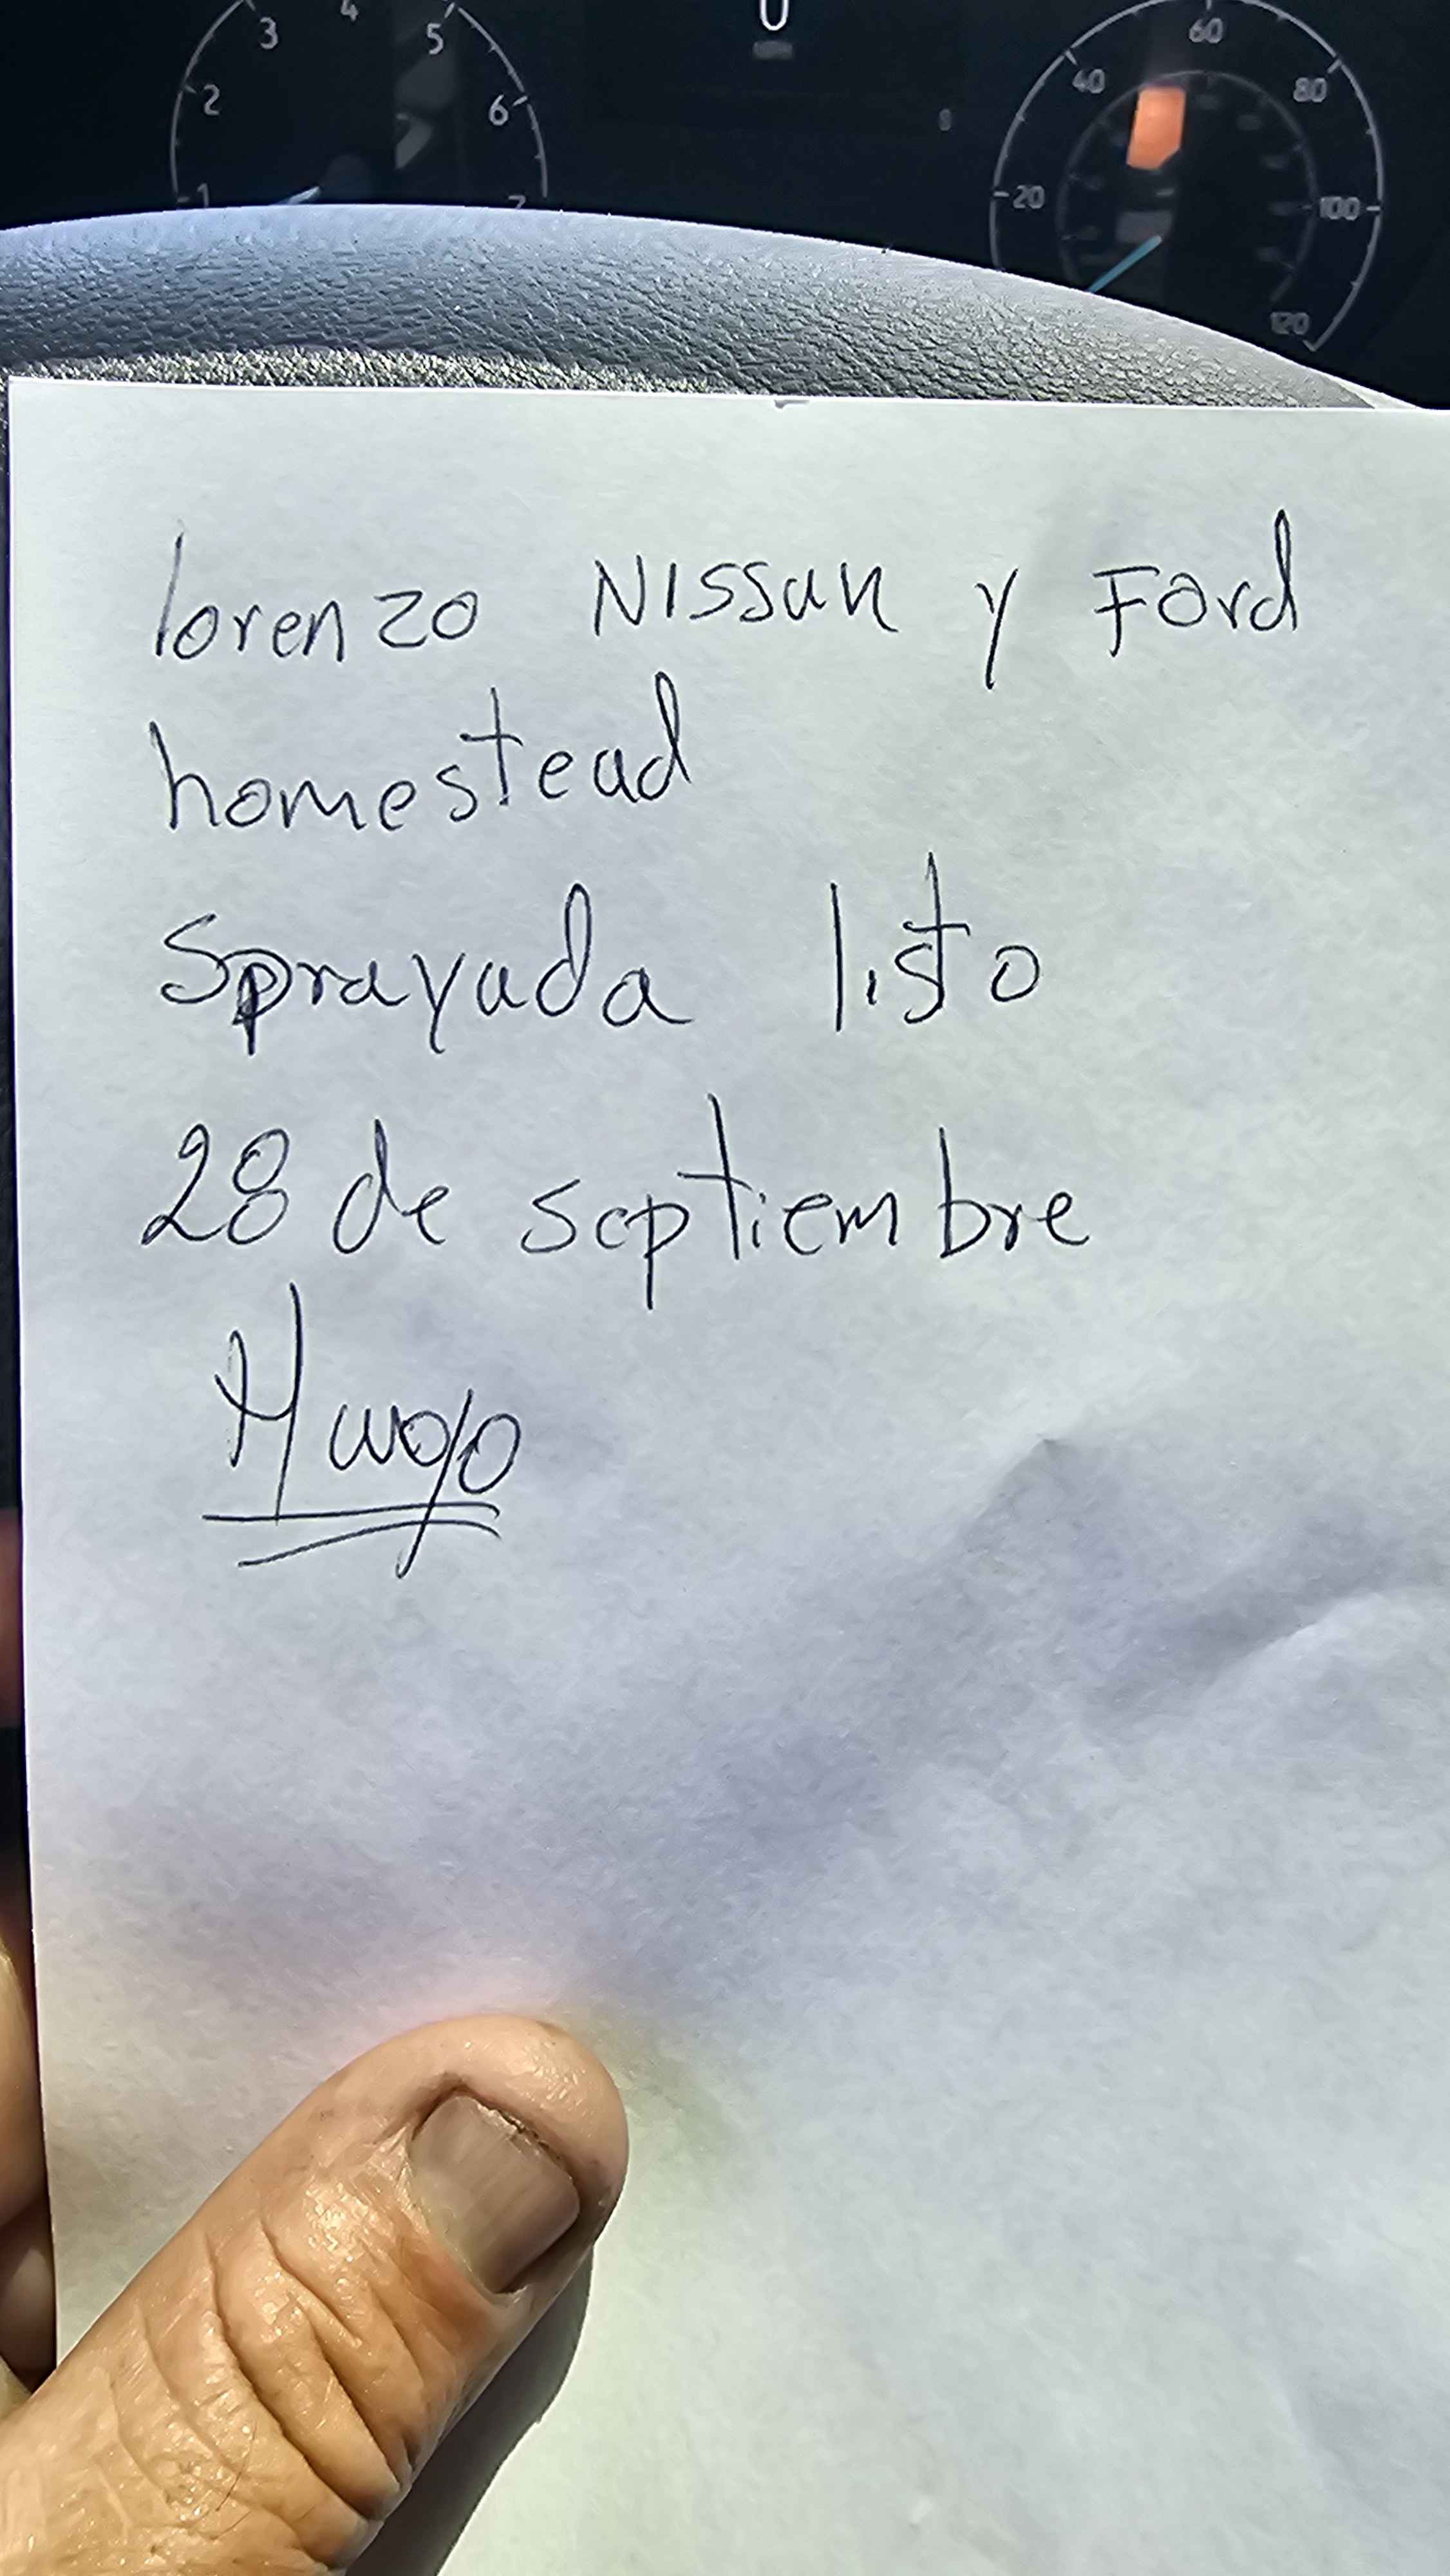 3 4 5
2 6
1 7
0
40 60 80
20 100
120
lorenzo Nissan y Ford
homestead
Sprayada listo
28 de septiembre
Hugo